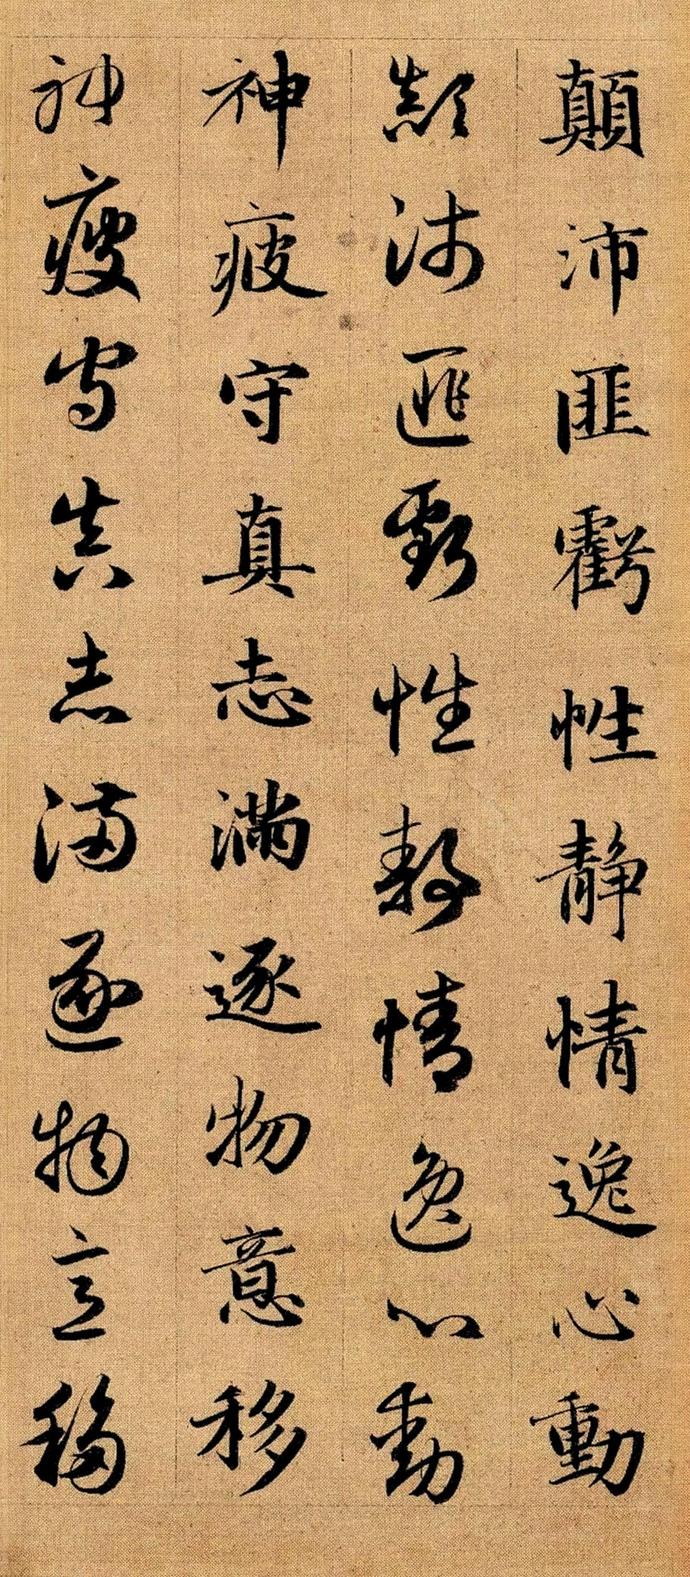 顛沛匪虧性靜情逸心動
顛沛匪虧性靜情逸心動
神疲守真志滿逐物意移
神疲守真志滿逐物意移